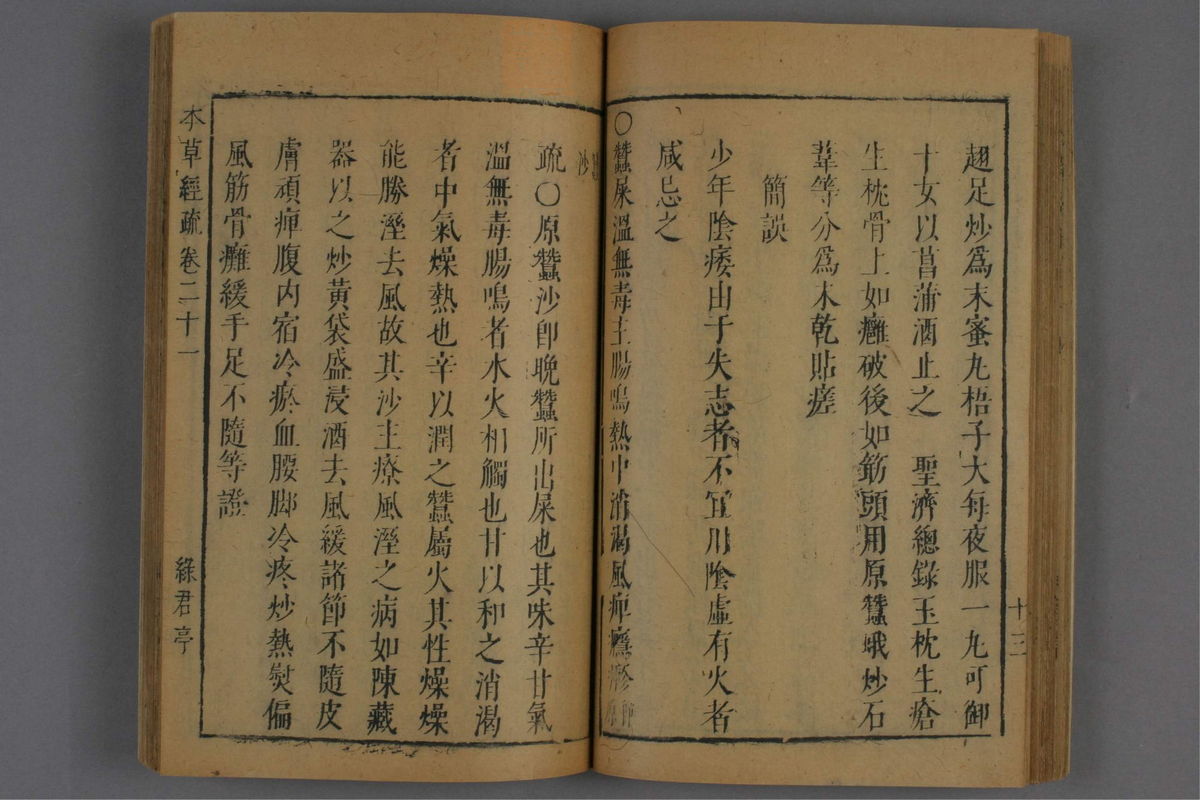 趐足炒為末蜜丸梧子大每夜服一丸可御
十女以菖蒲酒止之　聖濟總錄玉枕生瘡
生枕骨上如癰破後如筯頭用原蠶蛾炒石
葦等分為末乾貼瘥
簡誤
少年陰痿由于失志者不宜用陰虛有火者
咸忌之
〇蠶屎溫無毒主腸鳴熱中消渴風痺癮疹
十三
沙
疏〇原蠶沙卽晚蠶所出屎也其味辛甘氣
溫無毒腸鳴者水火相觸也甘以和之消渴
者中氣燥熱也辛以潤之蠶屬火其性燥燥
能勝溼去風故其沙主療風溼之病如陳藏
器以之炒黃袋盛浸酒去風緩諸節不隨皮
膚頑痺腹内宿冷瘀血腰脚冷疼炒熱熨偏
風筋骨癱緩手足不隨等證
本草經疏 卷二十一
綠君亭